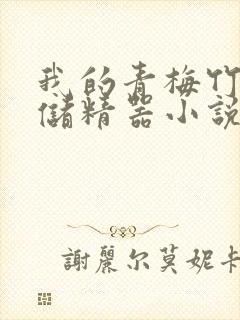 我的青梅竹
儲精器小說
謝麗尔莫妮卡